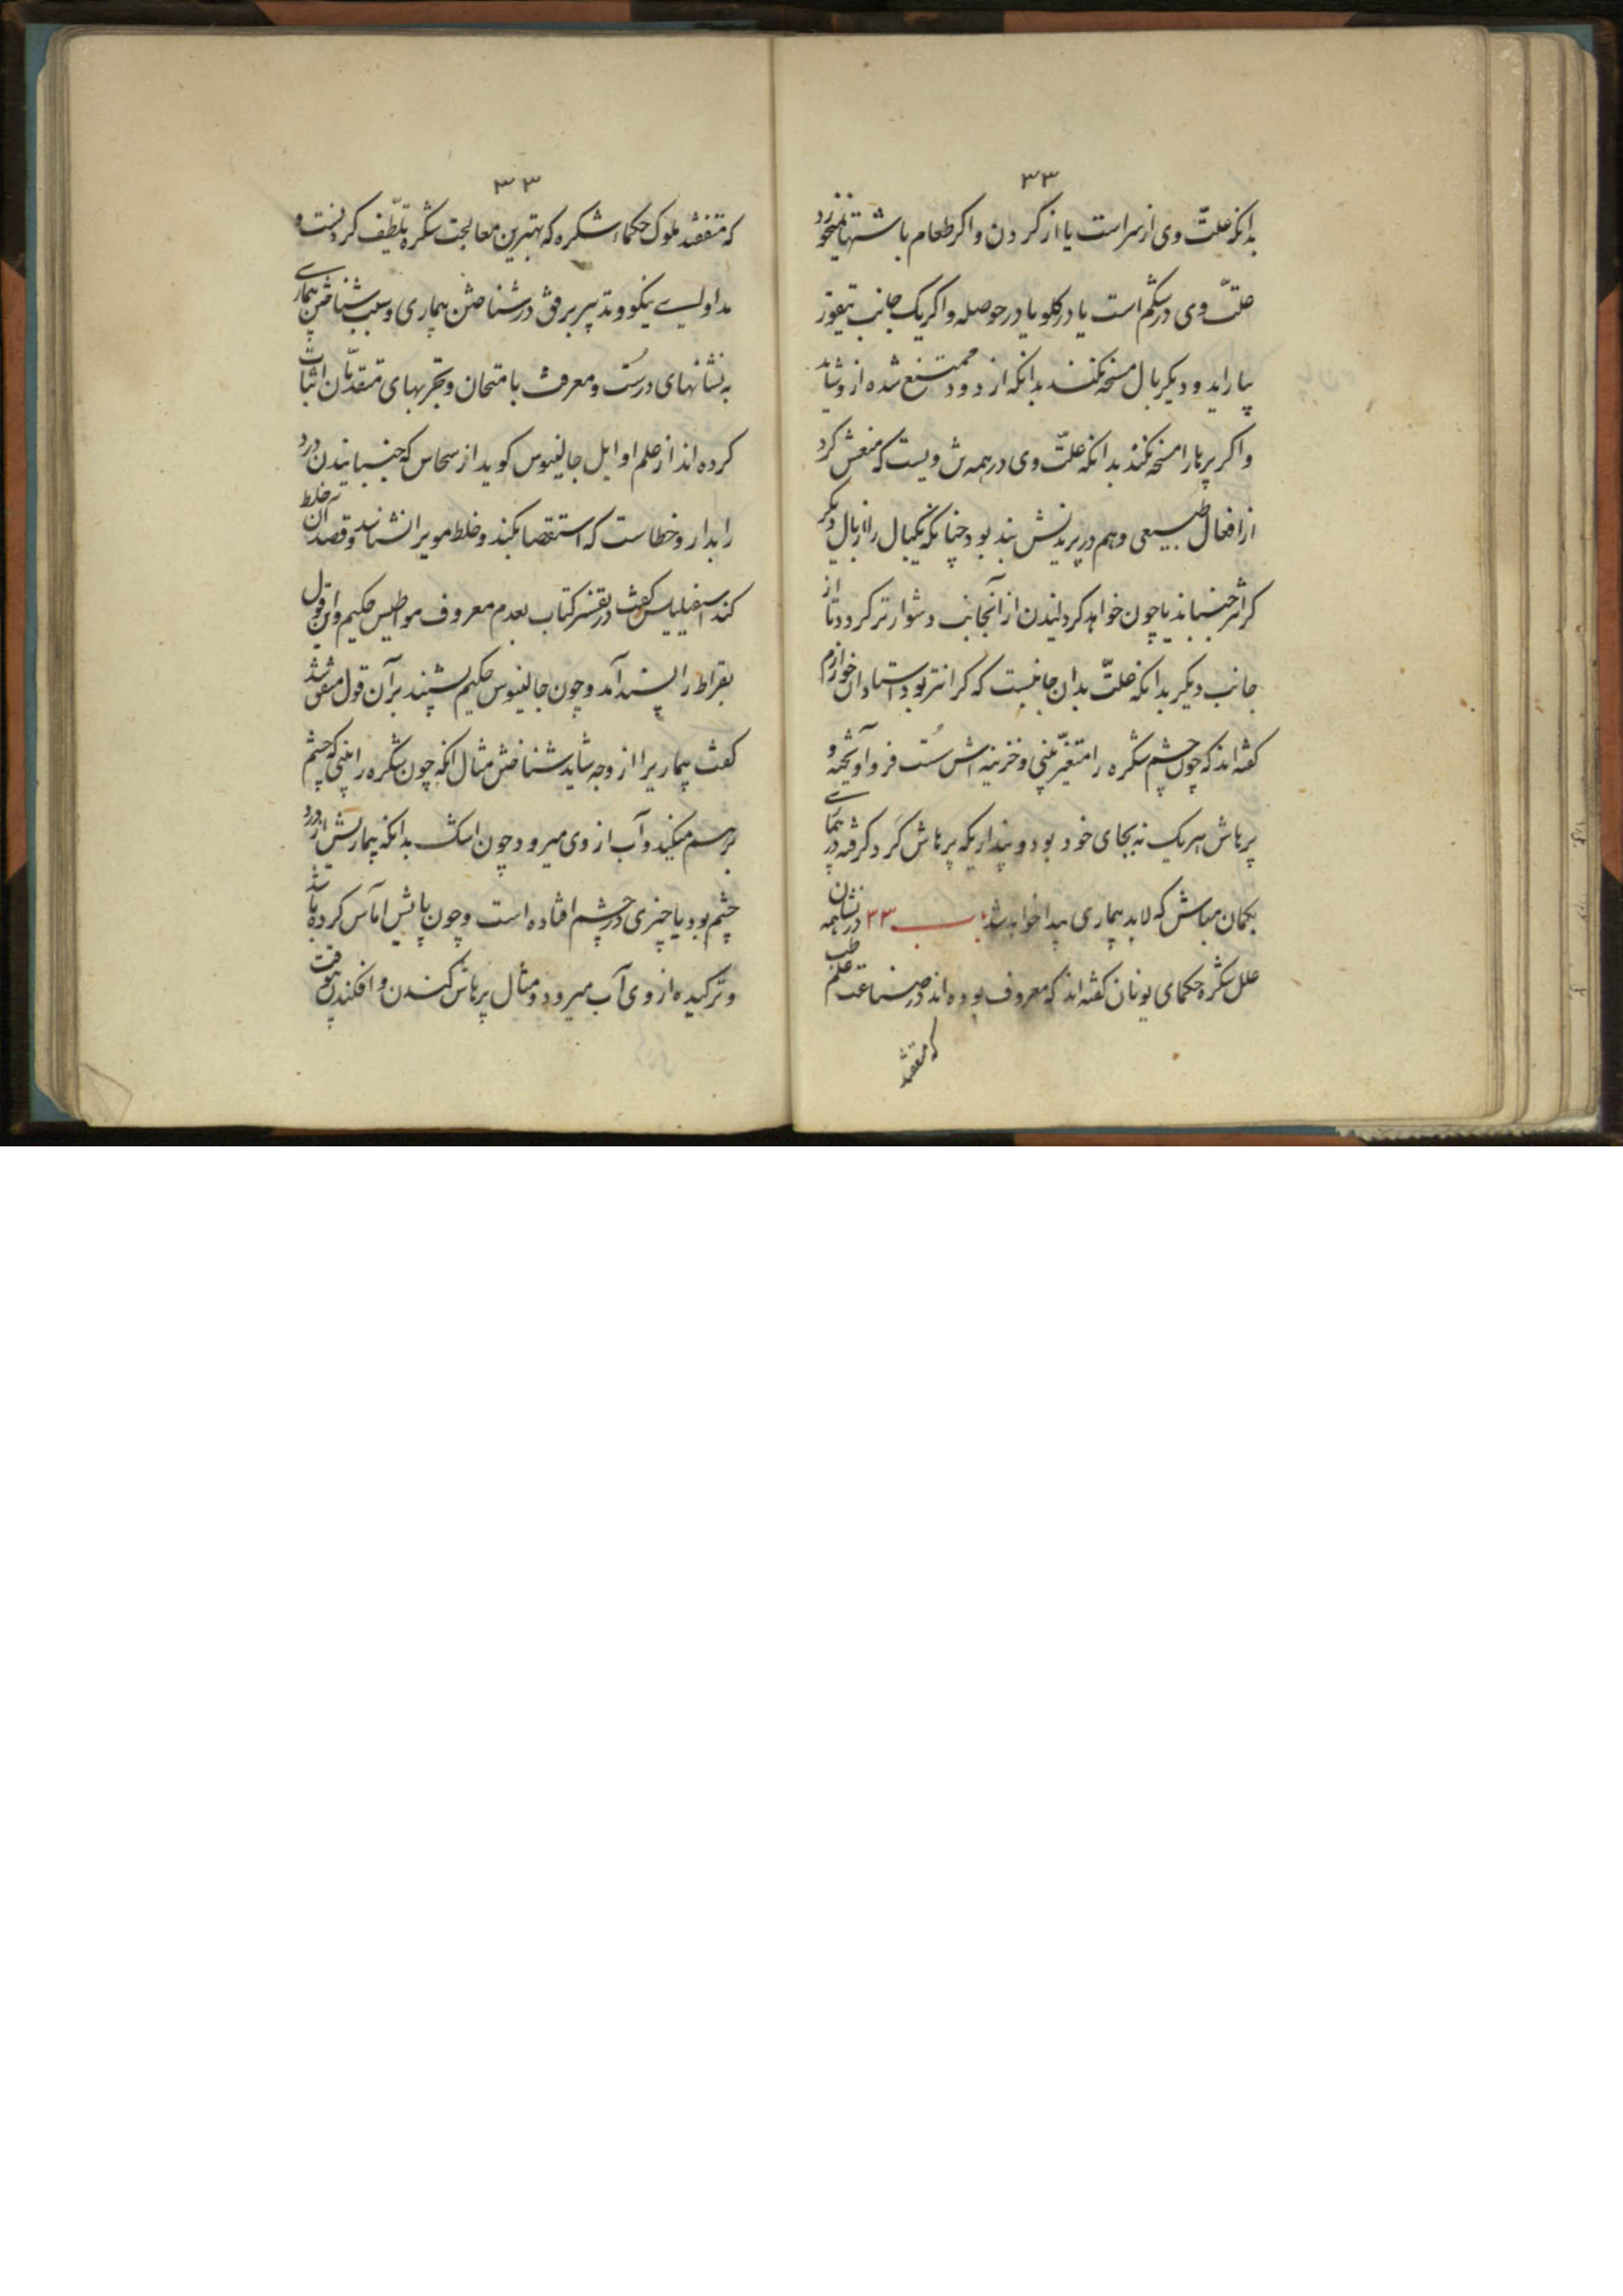 ۳۳
بدانکه علتّ وی از سر است یا از کردن و اکر طعام باشتها نمیخورد
علتّ وی در شکم است یا در کلو یا در حوصله و اکر یک جانب
بیاراید و دیکر بال مسخه نکند بدانکه از دود ممتنع شده
و اکر پرها را مسخه نکند بدانکه علتّ وی در همه تن ویست که منعش کرد
از افعال طبیعی و هم در پریدنش بند بود چنانکه یکبال را از بال دیکر
کرانتر جنباند یا چون خواهد کردانیدن از آنجانب دشوارتر کردد تا از
جانب دیکر بدانکه علتّ بدان جانبست که کرانتر بود استادان خوارزم
کفته اند که چون چشم شکره را متغیّر بینی و خزینه اش سُست فرو آویخته و
پرهاش هر یک نه بجای خود بود و پنداریکه پرهاش کَرد کرفته در بیماری
بکمان مباش که لابد بیماری پیدا خواهد شد باب ۳۳ در نشان همه
علل شکره حکمای یونان کفته اند که معروف بوده اند در صناعت علم طب
که متفقند
۳۳
که متفقند ملوک حکماء شکره که بهترین معالجت شکره تلطّیف کردنست و
مداوای نیکو و تدبیر برفق در شناختن بیماری و سبب شناختن بیماری
به نشانهای درسُت و معرفت بامتحان و تجربهای متقدّمان اثبات
کرده اند از علم اوایل جالینوس کوید از سحاس که جنبانیدن درد
را بدارو خطاست که استقصا نکند و خلط مویرا نشناسد و قصد آن خلط
کند کفت در کتاب معروف حکیم و این قول
بقراط را پسند آمد و چون جالینوس حکیم بشنید بر آن قول متفق شد
کفت بیماریرا از وجه شاید شناختن مثال آنکه چون شکره را بینی که چشم
برهم میکند و آب از وی میرود چون اشک بدانکه بیماریش از درد
چشم بود یا چیزی در چشم افتاده است و چون پایش اماس کرده باشد
و ترکیده از وی آب میرود و مثال پرهاش کندن و افکندن بیوقت